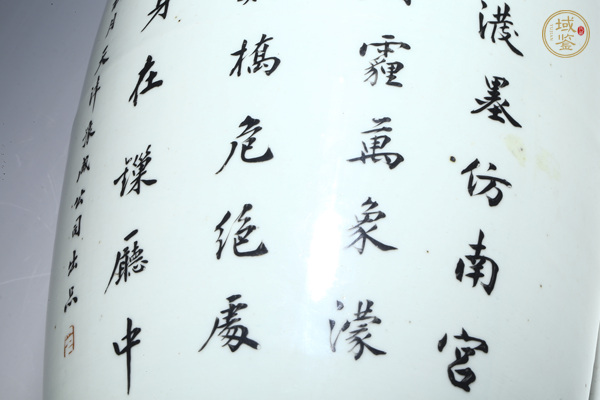 潑墨仿南宮
霾萬象濛
橋危絕處
身在鏁廳中
月天津成公司出品
域鉴